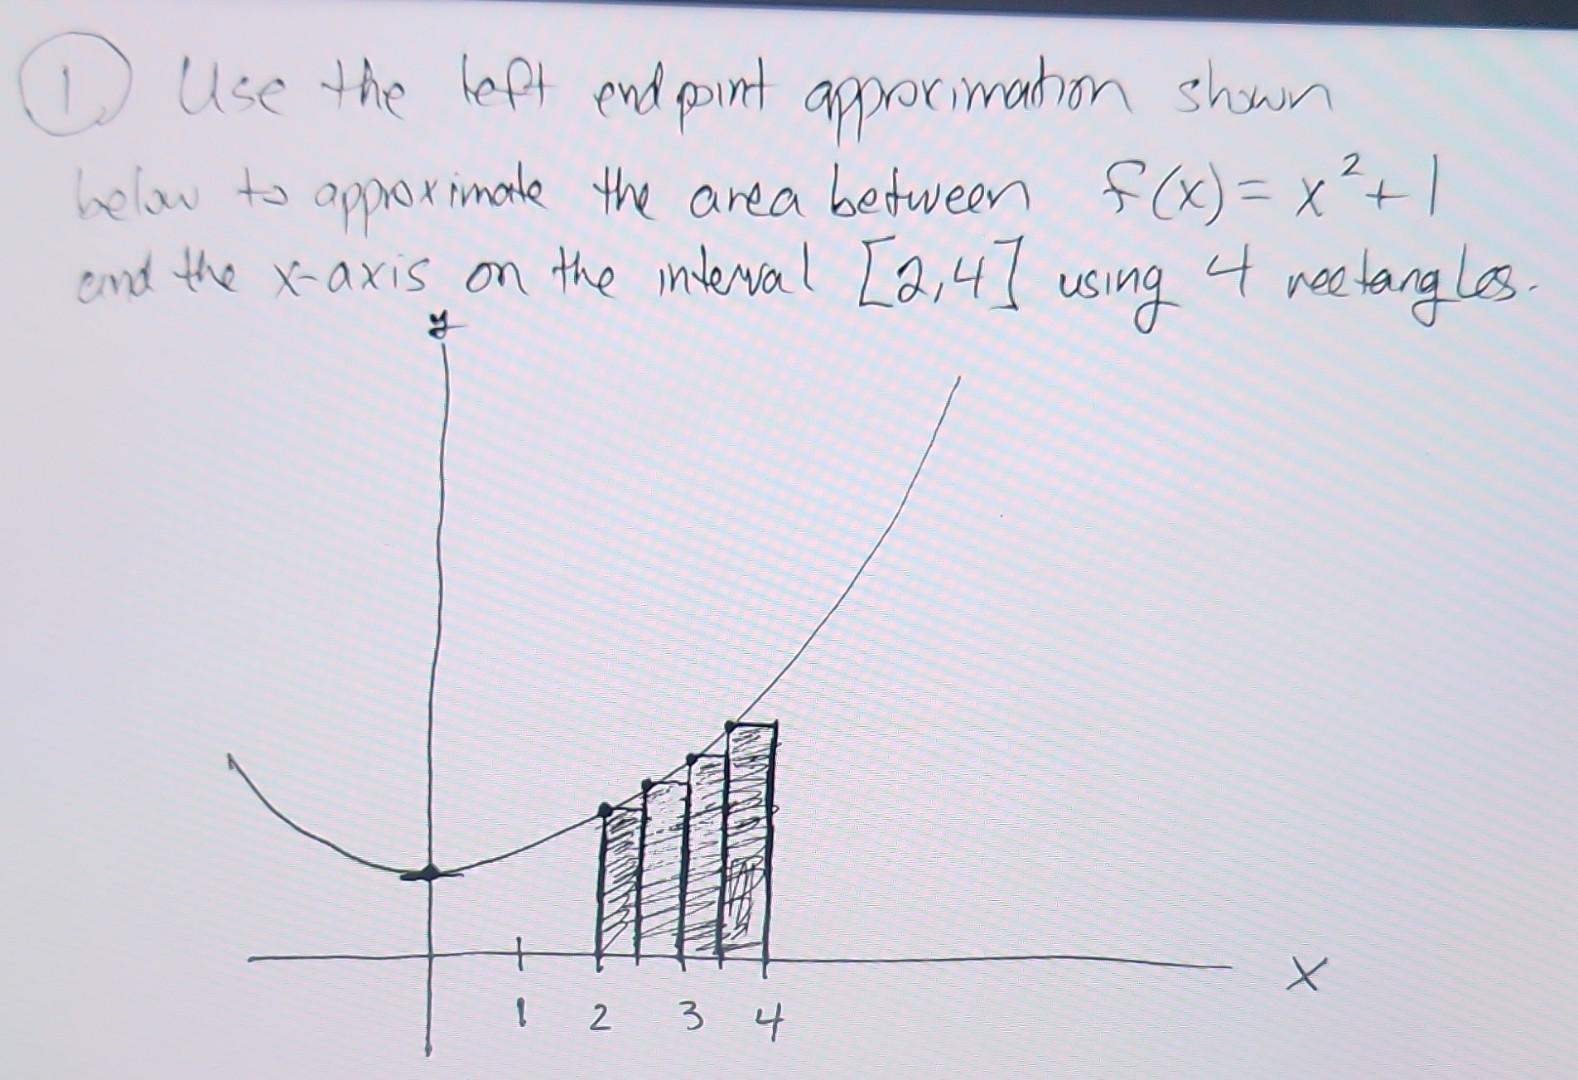 1 Use the left endpoint approximation shown
below to approximate the area between f(x) = x²+1
and the x-axis on the interval [2,4] using 4 rectangles.
y
x
1 2 3 4